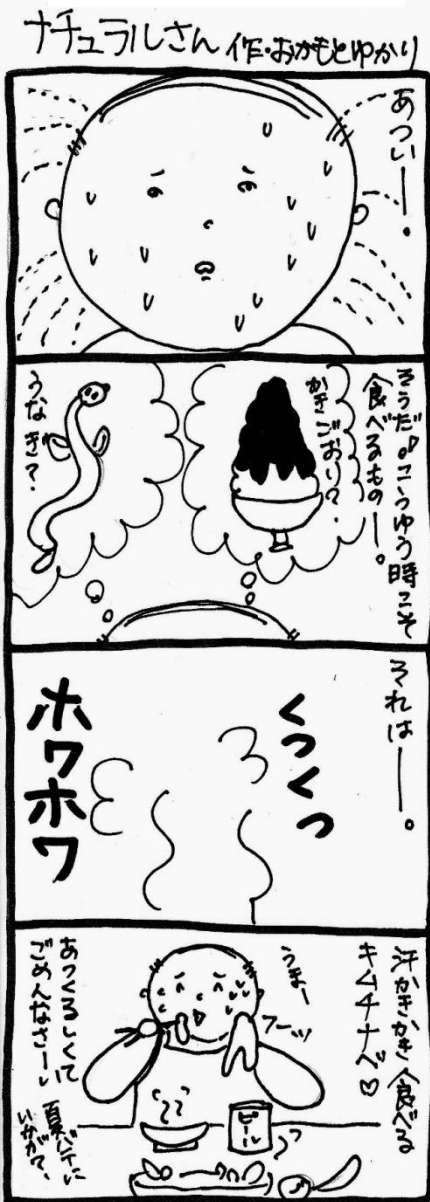 ナチュラルさん 作・おかもとゆかり
あつぃー。
そうだ!こうゆう時こそ
食べるものー。
かきごおり?
うなぎ?
それはー。
くつくつ
ホワホワ
汗かきかき食べる
キムチナベ♡
うまー
フーッ
ビール
あつくるしくて
ごめんなさーい
夏バテに
いかが?